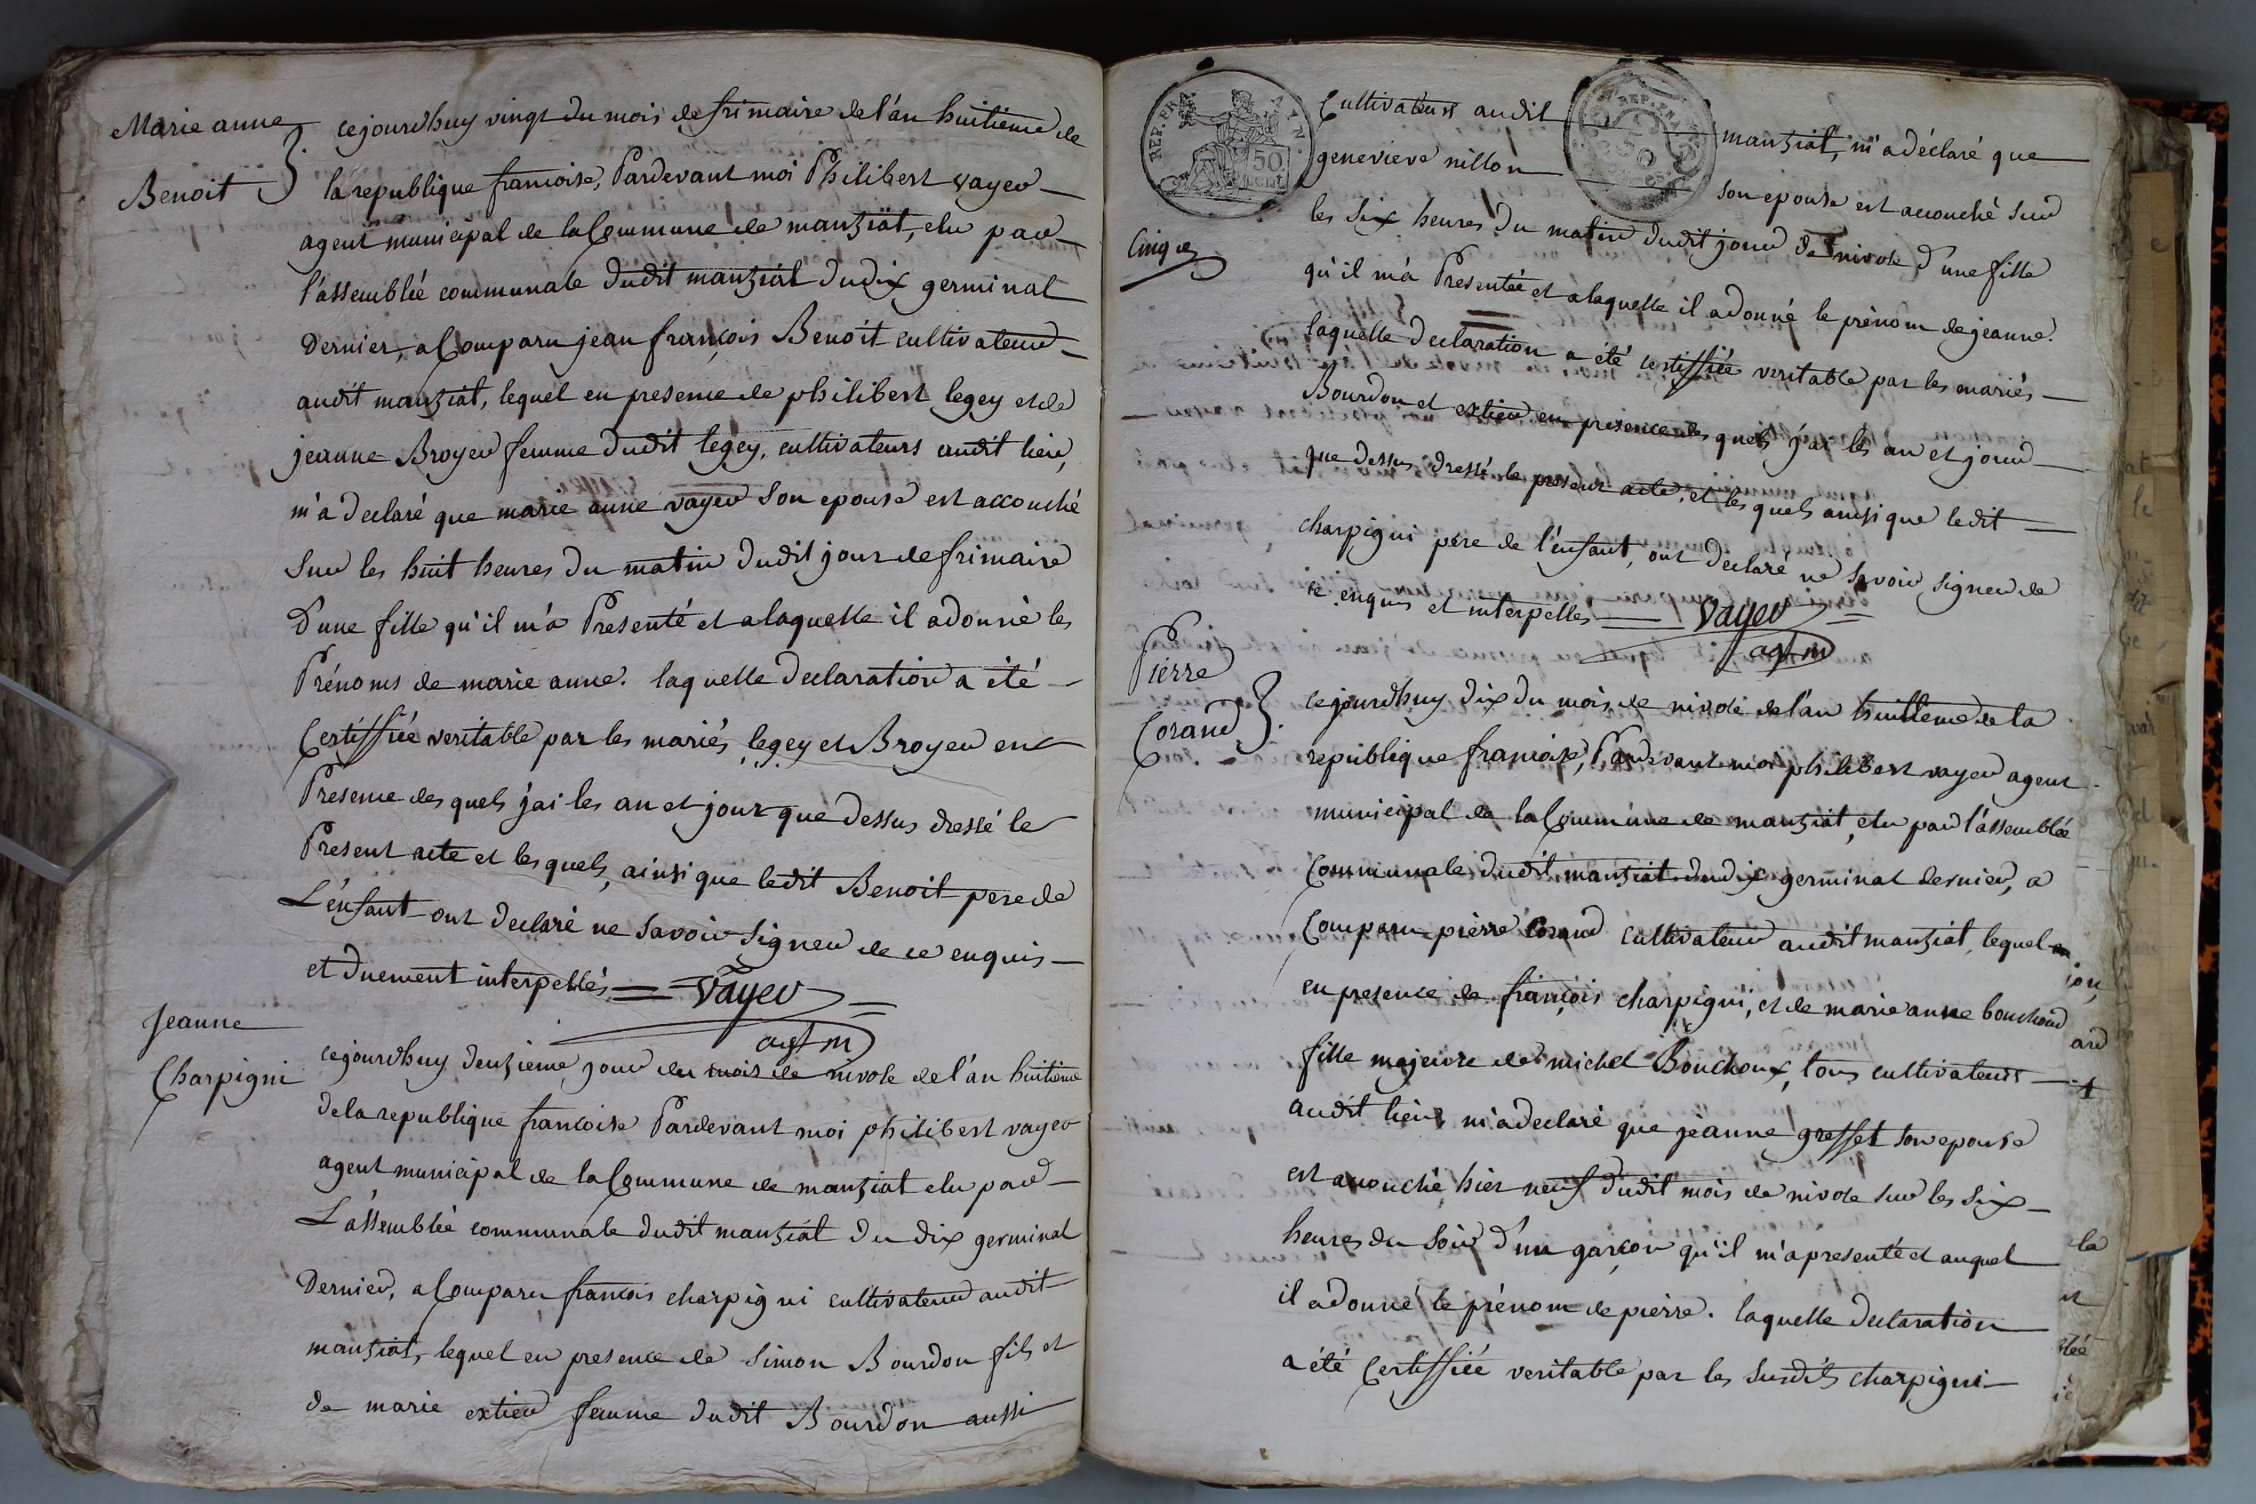 Marie anne
Benoit
cejourdhuy vingt du mois de frimaire de l'an huitieme de
la republique francoise, Pardevant moi Philibert vayer
agent municipal de la Commune de manziat, elu par
l'assemblée communale dudit manziat du dix germinal
dernier, a Comparu jean françois Benoit cultivateur
audit manziat, lequel en presence de philibert legey et de
jeanne Broyer femme dudit legey, cultivateurs audit lieu,
m'a declaré que marie anne vayer son epouse est accouché
sur les huit heures du matin dudit jour de frimaire
d'une fille qu'il m'a Presenté et a laquelle il a donné les
Prénoms de marie anne. laquelle declaration a été
Certiffiée veritable par les mariés legey et Broyer en
Presence des quels j'ai les an et jour que dessus dressé le
Present acte et les quels, ainsi que ledit Benoit pere de
L'enfant ont declaré ne savoir signer de ce enquis
et duement interpellés = vayer =
agt m
Jeanne
Charpigni
cejourdhuy deuzieme jour du mois de nivose de l'an huitieme
de la republique francoise Pardevant moi philibert vayer
agent municipal de la Commune de manziat elu par
L'assemblée communale dudit manziat du dix germinal
dernier, a Comparu francois charpigni cultivateur audit
manziat, lequel en presence de simon Bourdon fils et
de marie extier femme dudit Bourdon aussi
REP. FRA.
50
CENT.
REP. FRA.
Cultivateurs audit manziat, m'a déclaré que
genevieve nillon son epouse est accouché sur
les six heures du matin dudit jour de nivose d'une fille
Cinq
qu'il m'a Presentée et a laquelle il a donné le prénom de jeanne.
laquelle declaration a été certiffiée veritable par les mariés
Bourdon et extier en presence des quels j'ai les an et jour
que dessus dressé le present acte, et les quels ainsi que ledit
charpigni père de l'enfant, ont declaré ne savoir signer de
ce enquis et interpellés = vayer =
agt m
Pierre
Corand
cejourdhuy dix du mois de nivose de l'an huitieme de la
republique francoise, Pardevant moi philibert vayer agent
municipal de la Commune de manziat, elu par l'assemblée
Communale dudit manziat du dix germinal dernier, a
Comparu pierre Corand cultivateur audit manziat, lequel en
en presence de françois charpigni, et de marie anne bouchoud
fille majeure de michel Bouchoux, tous cultivateurs
audit lieu, m'a declaré que jeanne gresset son epouse
est accouché hier neuf dudit mois de nivose sur les six
heures du soir d'un garçon qu'il m'a presenté et auquel
il a donné le prénom de pierre. laquelle declaration
a été Certiffiée veritable par les susdits charpigni